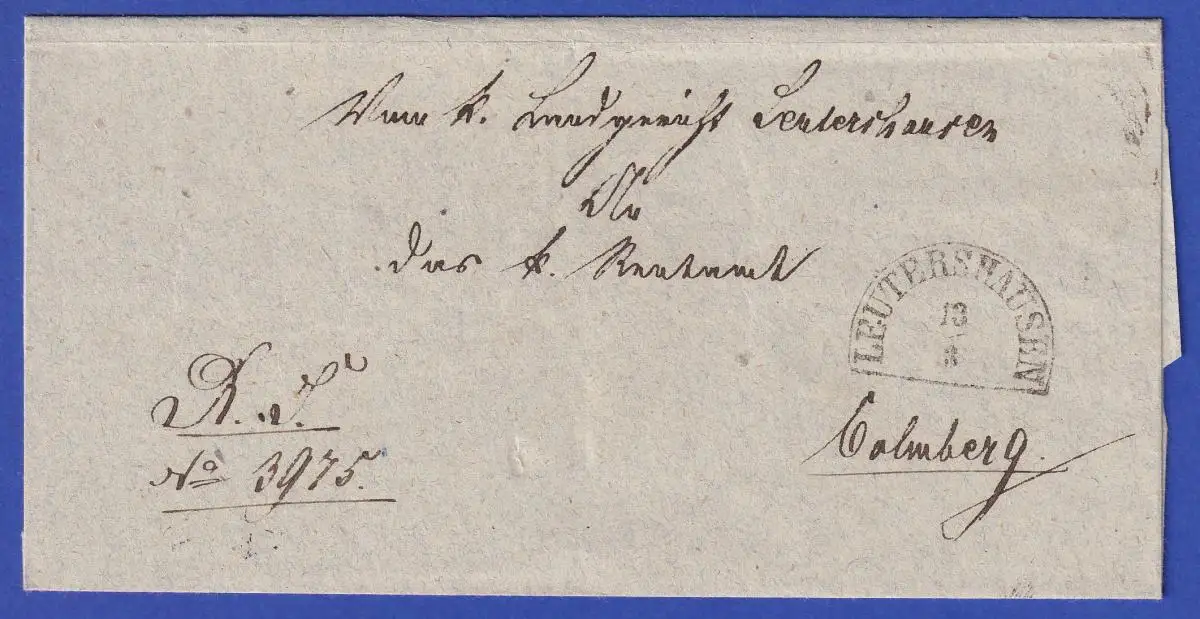 Vom k. Landgericht Leutershausen
An
das k. Rentamt
LEUTERSHAUSEN
13
8
R. S.
No 3975.
Colmberg.